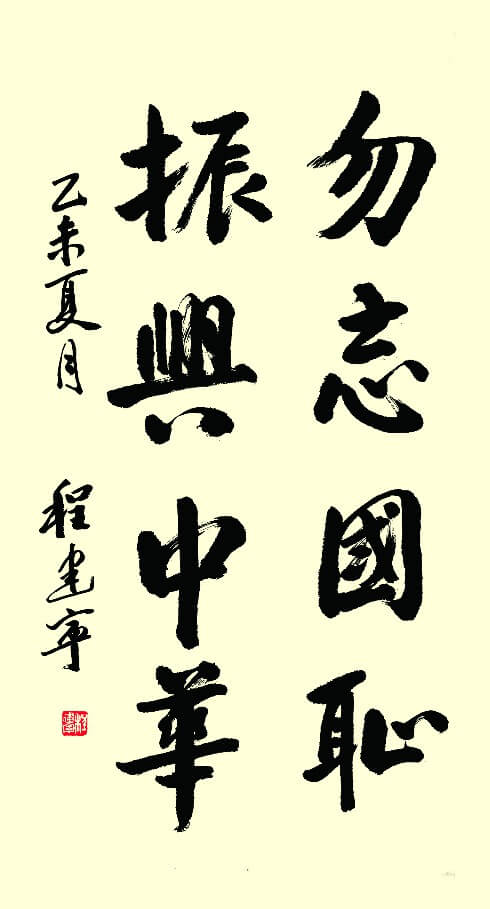 勿忘國恥
振興中華
乙未夏月 程建寧